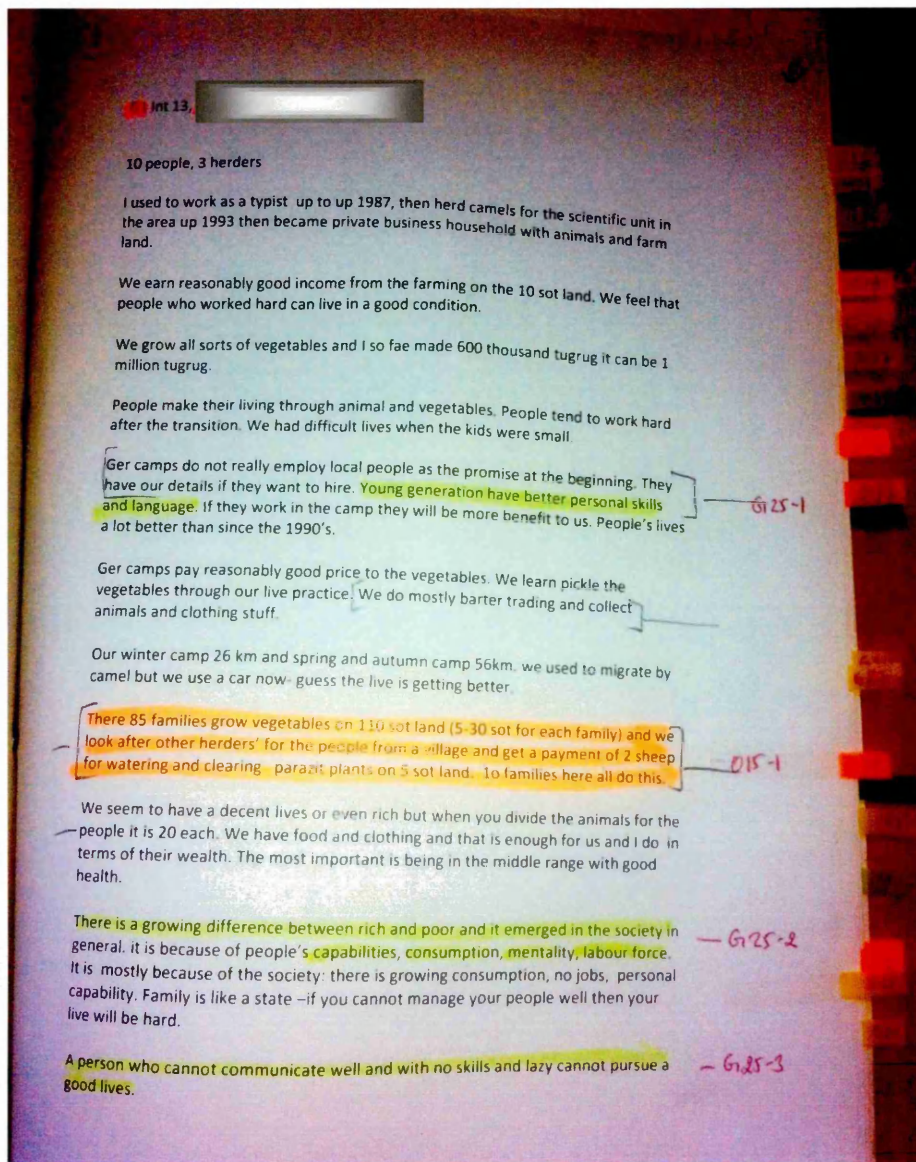 Int 13,
10 people, 3 herders
I used to work as a typist up to up 1987, then herd camels for the scientific unit in
the area up 1993 then became private business household with animals and farm
land.
We earn reasonably good income from the farming on the 10 sot land. We feel that
people who worked hard can live in a good condition.
We grow all sorts of vegetables and I so fae made 600 thousand tugrug it can be 1
million tugrug.
People make their living through animal and vegetables. People tend to work hard
after the transition. We had difficult lives when the kids were small.
Ger camps do not really employ local people as the promise at the beginning. They
have our details if they want to hire. Young generation have better personal skills
and language. If they work in the camp they will be more benefit to us. People's lives
a lot better than since the 1990's.
G25-1
Ger camps pay reasonably good price to the vegetables. We learn pickle the
vegetables through our live practice. We do mostly barter trading and collect
animals and clothing stuff.
Our winter camp 26 km and spring and autumn camp 56km. we used to migrate by
camel but we use a car now- guess the live is getting better.
There 85 families grow vegetables on 110 sot land (5-30 sot for each family) and we
look after other herders' for the people from a village and get a payment of 2 sheep
for watering and clearing parazit plants on 5 sot land. 1o families here all do this.
O15-1
We seem to have a decent lives or even rich but when you divide the animals for the
people it is 20 each. We have food and clothing and that is enough for us and I do in
terms of their wealth. The most important is being in the middle range with good
health.
There is a growing difference between rich and poor and it emerged in the society in
general. it is because of people's capabilities, consumption, mentality, labour force.
It is mostly because of the society: there is growing consumption, no jobs, personal
capability. Family is like a state –if you cannot manage your people well then your
live will be hard.
G25-2
A person who cannot communicate well and with no skills and lazy cannot pursue a
good lives.
G25-3